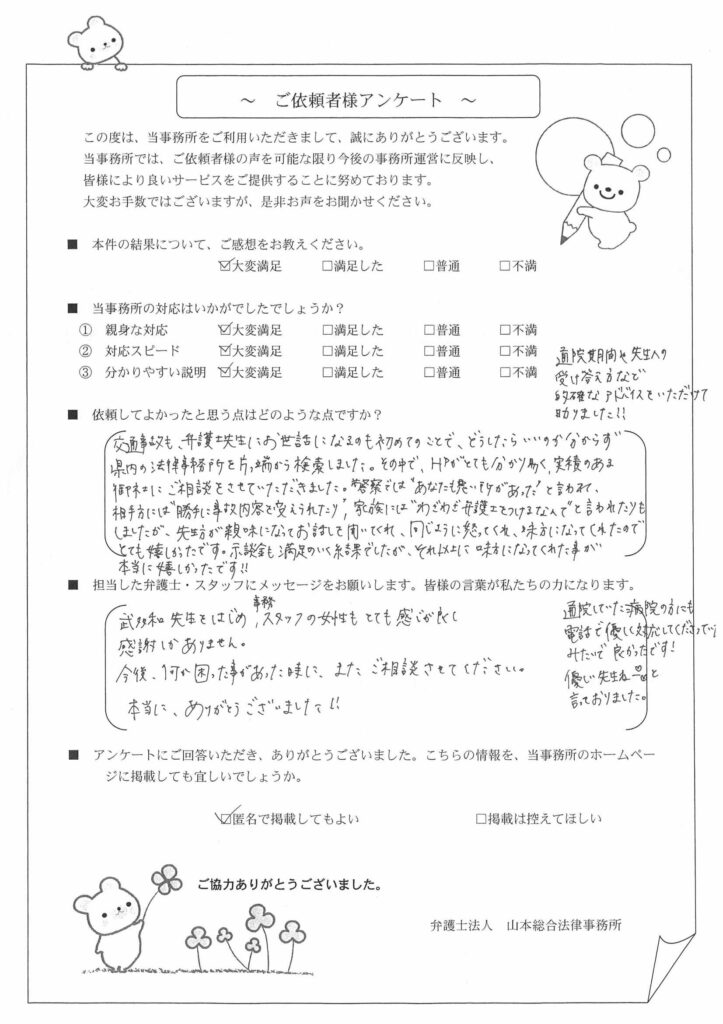 ～ ご依頼者様アンケート ～
この度は、当事務所をご利用いただきまして、誠にありがとうございます。
当事務所では、ご依頼者様の声を可能な限り今後の事務所運営に反映し、
皆様により良いサービスをご提供することに努めております。
大変お手数ではございますが、是非お声をお聞かせください。
■ 本件の結果について、ご感想をお教えください。
☑大変満足 □満足した □普通 □不満
■ 当事務所の対応はいかがでしたでしょうか？
① 親身な対応 ☑大変満足 □満足した □普通 □不満
② 対応スピード ☑大変満足 □満足した □普通 □不満
③ 分かりやすい説明 ☑大変満足 □満足した □普通 □不満
通院期間や先生への
受け答え方など
的確なアドバイスをいただけて
助りました!!
■ 依頼してよかったと思う点はどのような点ですか？
交通事故も、弁護士先生にお世話になるのも初めてのことで、どうしたらいいのか分からず
県内の法律事務所を片っ端から検索しました。その中で、HPがとても分かり易く、実績のある
御社にご相談をさせていただきました。警察では"あなたも悪い所があった"と言われて、
相手方には"勝手に事故内容を変えられたり"、家族には"わざわざ弁護士をつけるなんて"と言われたりも
しましたが、先生方が親味になってお話しを聞いてくれ、同じように怒ってくれ、味方になってくれたので
とても嬉しかったです。示談金も満足のいく結果でしたが、それ以上に味方になってくれた事が
本当に嬉しかったです!!
■ 担当した弁護士・スタッフにメッセージをお願いします。皆様の言葉が私たちの力になります。
武多和先生をはじめ、事務スタッフの女性もとても感じが良く
感謝しかありません。
今後、何か困った事があった時に、またご相談させてください。
本当に、ありがとうございました!!
通院していた病院の方にも
電話で優しく対応してくださってい
みたいで良かったです!
優しい先生ね と
言っておりました。
■ アンケートにご回答いただき、ありがとうございました。こちらの情報を、当事務所のホームペー
ジに掲載しても宜しいでしょうか。
☑匿名で掲載してもよい □掲載は控えてほしい
ご協力ありがとうございました。
弁護士法人 山本総合法律事務所